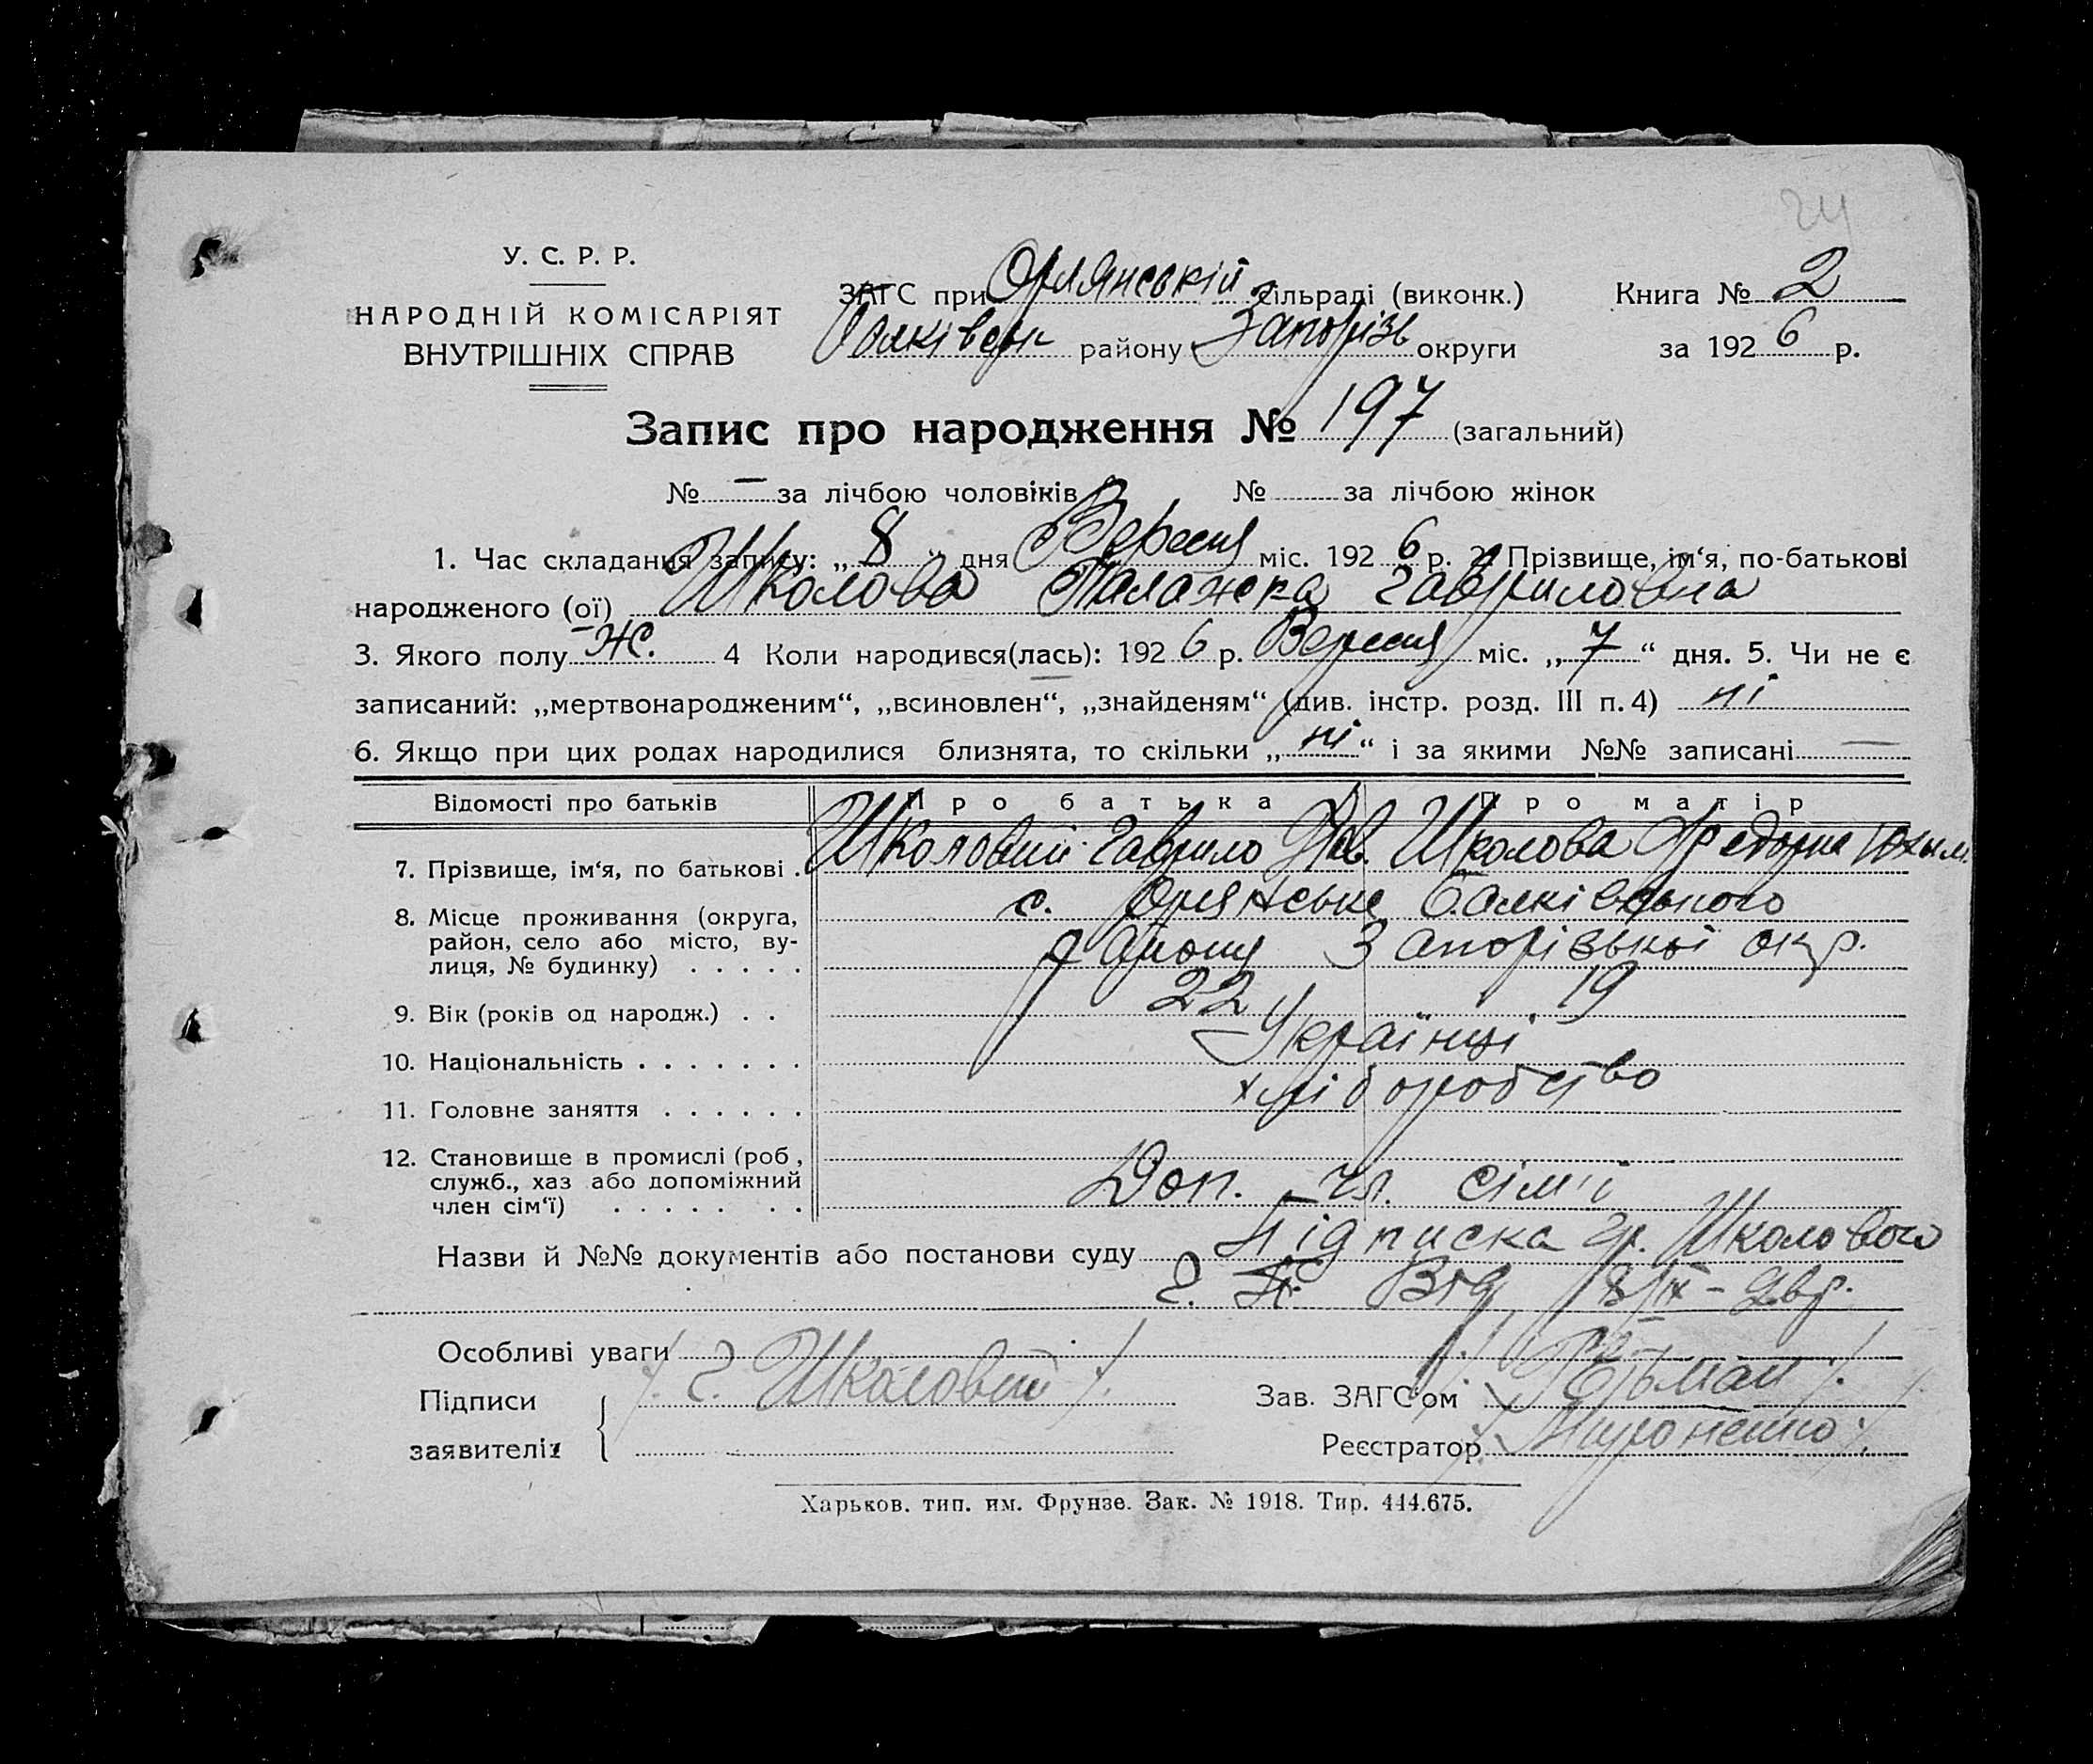 24
У. С. Р. Р.
НАРОДНІЙ КОМІСАРІЯТ
ВНУТРІШНІХ СПРАВ
ЗАГС при Орлянській сільраді (виконк.) Книга № 2
Балківськ району Запорізь округи за 1926 р.
Запис про народження № 197 (загальний)
№ — за лічбою чоловіків № за лічбою жінок
1. Час складання запису: „8“ дня Вересня міс. 1926 р. 2. Прізвище, ім‘я, по-батькові
народженого (ої) Школова Палажка Гавриловна
3. Якого полу Ж. 4 Коли народився(лась): 1926 р. Вересня міс. „7“ дня. 5. Чи не є
записаний: „мертвонародженим“, „всиновлен“, „знайденям“ (див. інстр. розд. III п. 4) ні
6. Якщо при цих родах народилися близнята, то скільки „ні“ і за якими №№ записані —
Відомості про батьків Про батька Про матір
7. Прізвище, ім‘я, по батькові . Школовий Гаврило Школова Федорка Юхим.
8. Місце проживання (округа, с. Орлянське Балківського
район, село або місто, ву- району Запорізької окр.
лиця, № будинку) . . . . .
9. Вік (років од народж.) . . 22 19
10. Національність . . . . . . . Українці
11. Головне заняття . . . . . . хліборобство
12. Становище в промислі (роб.,
служб., хаз або допоміжний Доп. чл. сім'ї
член сім‘ї) . . . . . . .
Назви й №№ документів або постанови суду Підписка гр. Школового
Г. Від 8/IX –
Особливі уваги
Підписи /. Г. Школовий /. Зав. ЗАГС‘ом
заявителів Реєстратор Мироненко /.
Харьков. тип. им. Фрунзе. Зак. № 1918. Тир. 444.675.